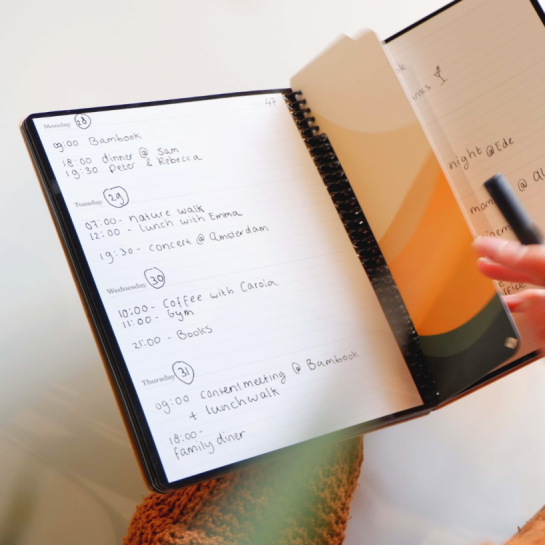 47
Monday 28
09:00 Bambook
18:00 dinner @ Sam
19:30 Peter & Rebecca
Tuesday 29
07:00 - nature walk
12:00 - lunch with Emma
19:30 - concert @ Amsterdam
Wednesday 30
10:00 - Coffee with Carola
11:00 - Gym
21:00 - Books
Thursday 31
09:00 contentmeeting @ Bambook
+ lunchwalk
18:00 -
family diner
night @ Ede
@